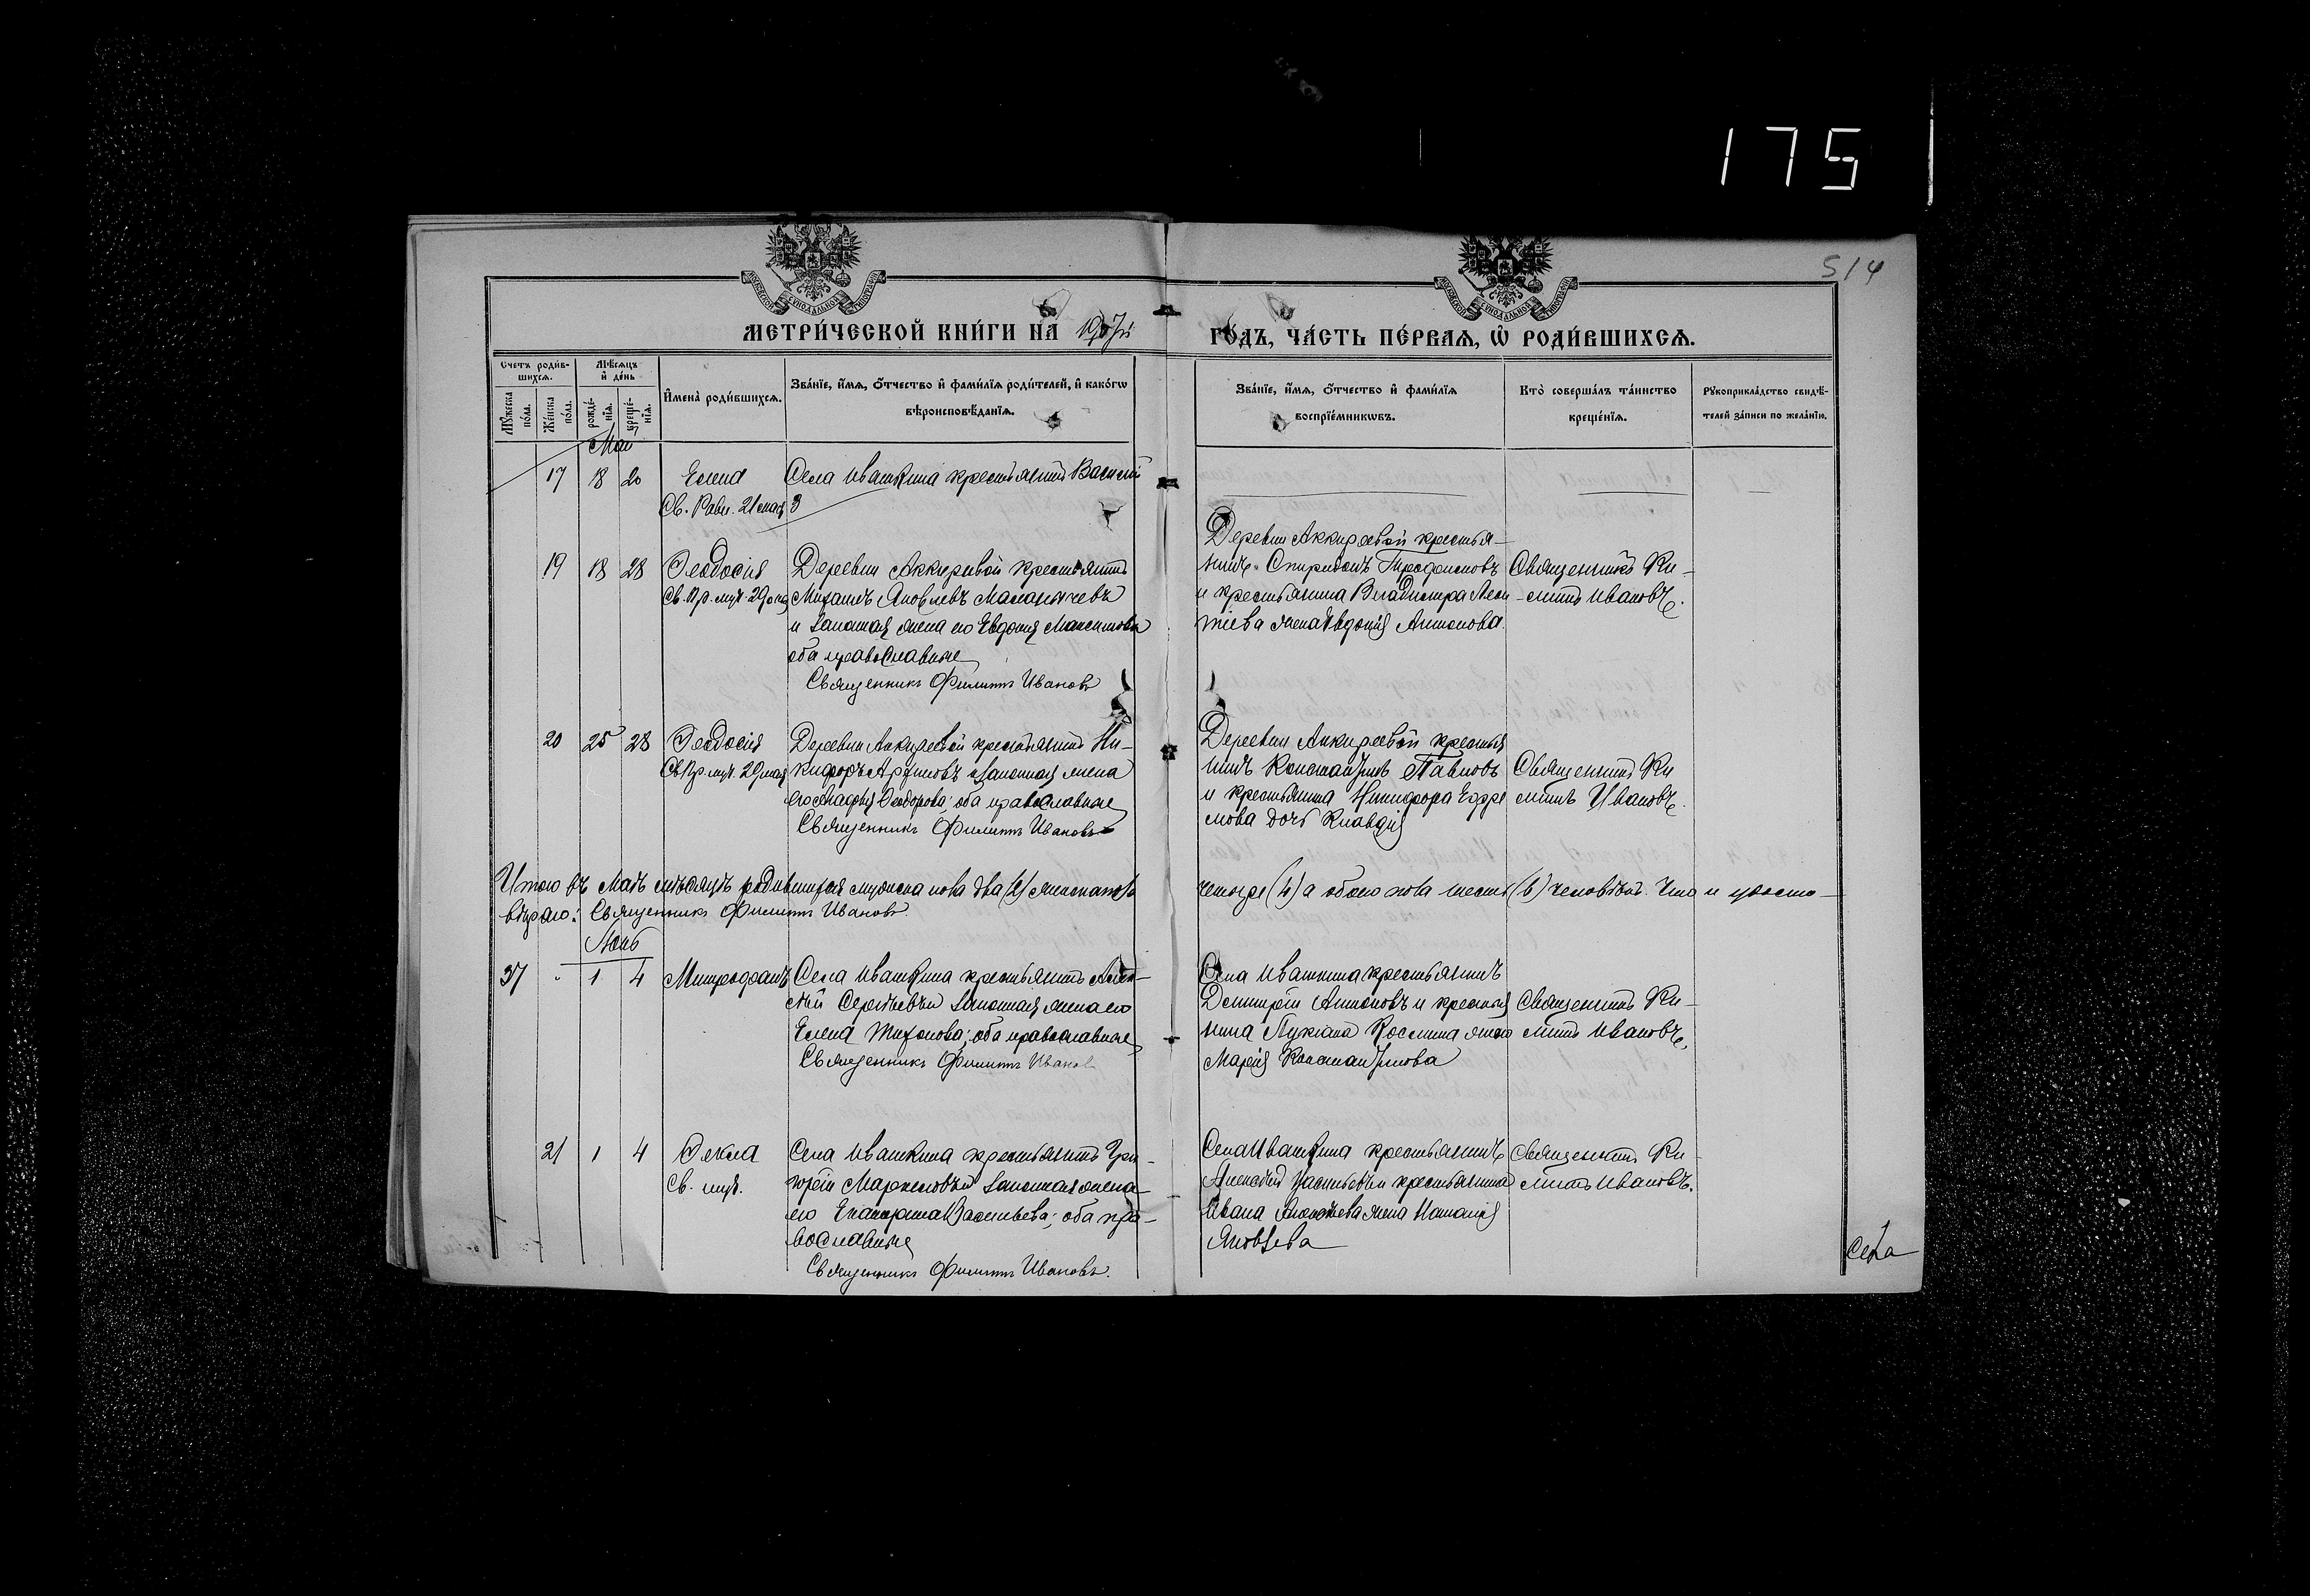 175
514
МЕТРИ́ЧЕСКОЙ КНИ́ГИ НА 1907й ГО́ДЪ, ЧА́СТЬ ПЕ́РВАѦ, Ѡ҆ РОДИ́ВШИХСѦ.
Счетъ роди́вшихсѧ.
Мѣ́сѧцъ и҆ де́нь
И҆мена̀ роди́вшихсѧ.
Зва́нїе, и҆́мѧ, ѻ҆́тчество и҆ фами́лїѧ роди́телей, и҆ како́гѡ
вѣроисповѣ́данїѧ.
Зва́нїе, и҆́мѧ, ѻ҆́тчество и҆ фами́лїѧ
воспрїе́мникѡвъ.
Кто̀ соверша́лъ та́инство
креще́нїѧ.
Рꙋкоприкла́дство свидѣ́-
телей за́писи по жела́нїю.
Мꙋ́жеска по́ла.
Же́нска по́ла.
рожде́-нїѧ.
креще́-нїѧ.
Май
17 18 20 Елена Села Ивашкина крестьянинъ Василій
Св. Равн. 21 мая З
19 18 28 Ѳеодосія Деревни Аккиревой крестьянинъ
Св. Пр. муч. 29 мая Михаилъ Яковлевъ
и законная жена его Евдокія Максимова
оба православные
Священникъ Филиппъ Ивановъ
Деревни Аккиревой крестья-
нинъ Спиридонъ Трофимовъ
и крестьянина Владимира Леон
тіева жена Евдокія Антонова.
Священникъ Фи-
липпъ Ивановъ.
20 25 28 Ѳеодосія Деревни Аккиревой крестьянинъ Ни-
Св. Пр. муч. 29 мая кифоръ и законная жена
его Ѳеодорова; оба православные
Священникъ Филиппъ Ивановъ
Деревни Аккиревой крестья
нинъ Константинъ Павловъ
и крестьянина Никифора Ефре
мова дочь Клавдія
Священникъ Фи
липпъ Ивановъ.
Итого въ Маѣ мѣсяцѣ родившихся мужска пола два (2) женскаго
четыре (4) а обоего пола шесть (6) человѣкъ. Что и удосто-
вѣряю: Священникъ Филиппъ Ивановъ.
Іюнь
37 " 1 4 Митрофанъ Села Ивашкина крестьянинъ Алек-
сѣй Сергѣевъ и законная жена его
Елена Тихонова; оба православные
Священникъ Филиппъ Ивановъ
Села Ивашкина крестьянинъ
Димитрій Антоновъ и крестья
нина Лукіана Космина жена
Марія Константинова
Священникъ Фи-
липпъ Ивановъ.
21 1 4 Ѳекла Села Ивашкина крестьянинъ Гри-
Св. муч. горій и законная жена
его Екатерина Васильева; оба пра-
вославные
Священникъ Филиппъ Ивановъ.
Села Ивашкина крестьянинъ
Алексѣй Васильевъ и крестьянина
Ивана жена Наталія
Яковлева
Священникъ Фи-
липпъ Ивановъ.
Села